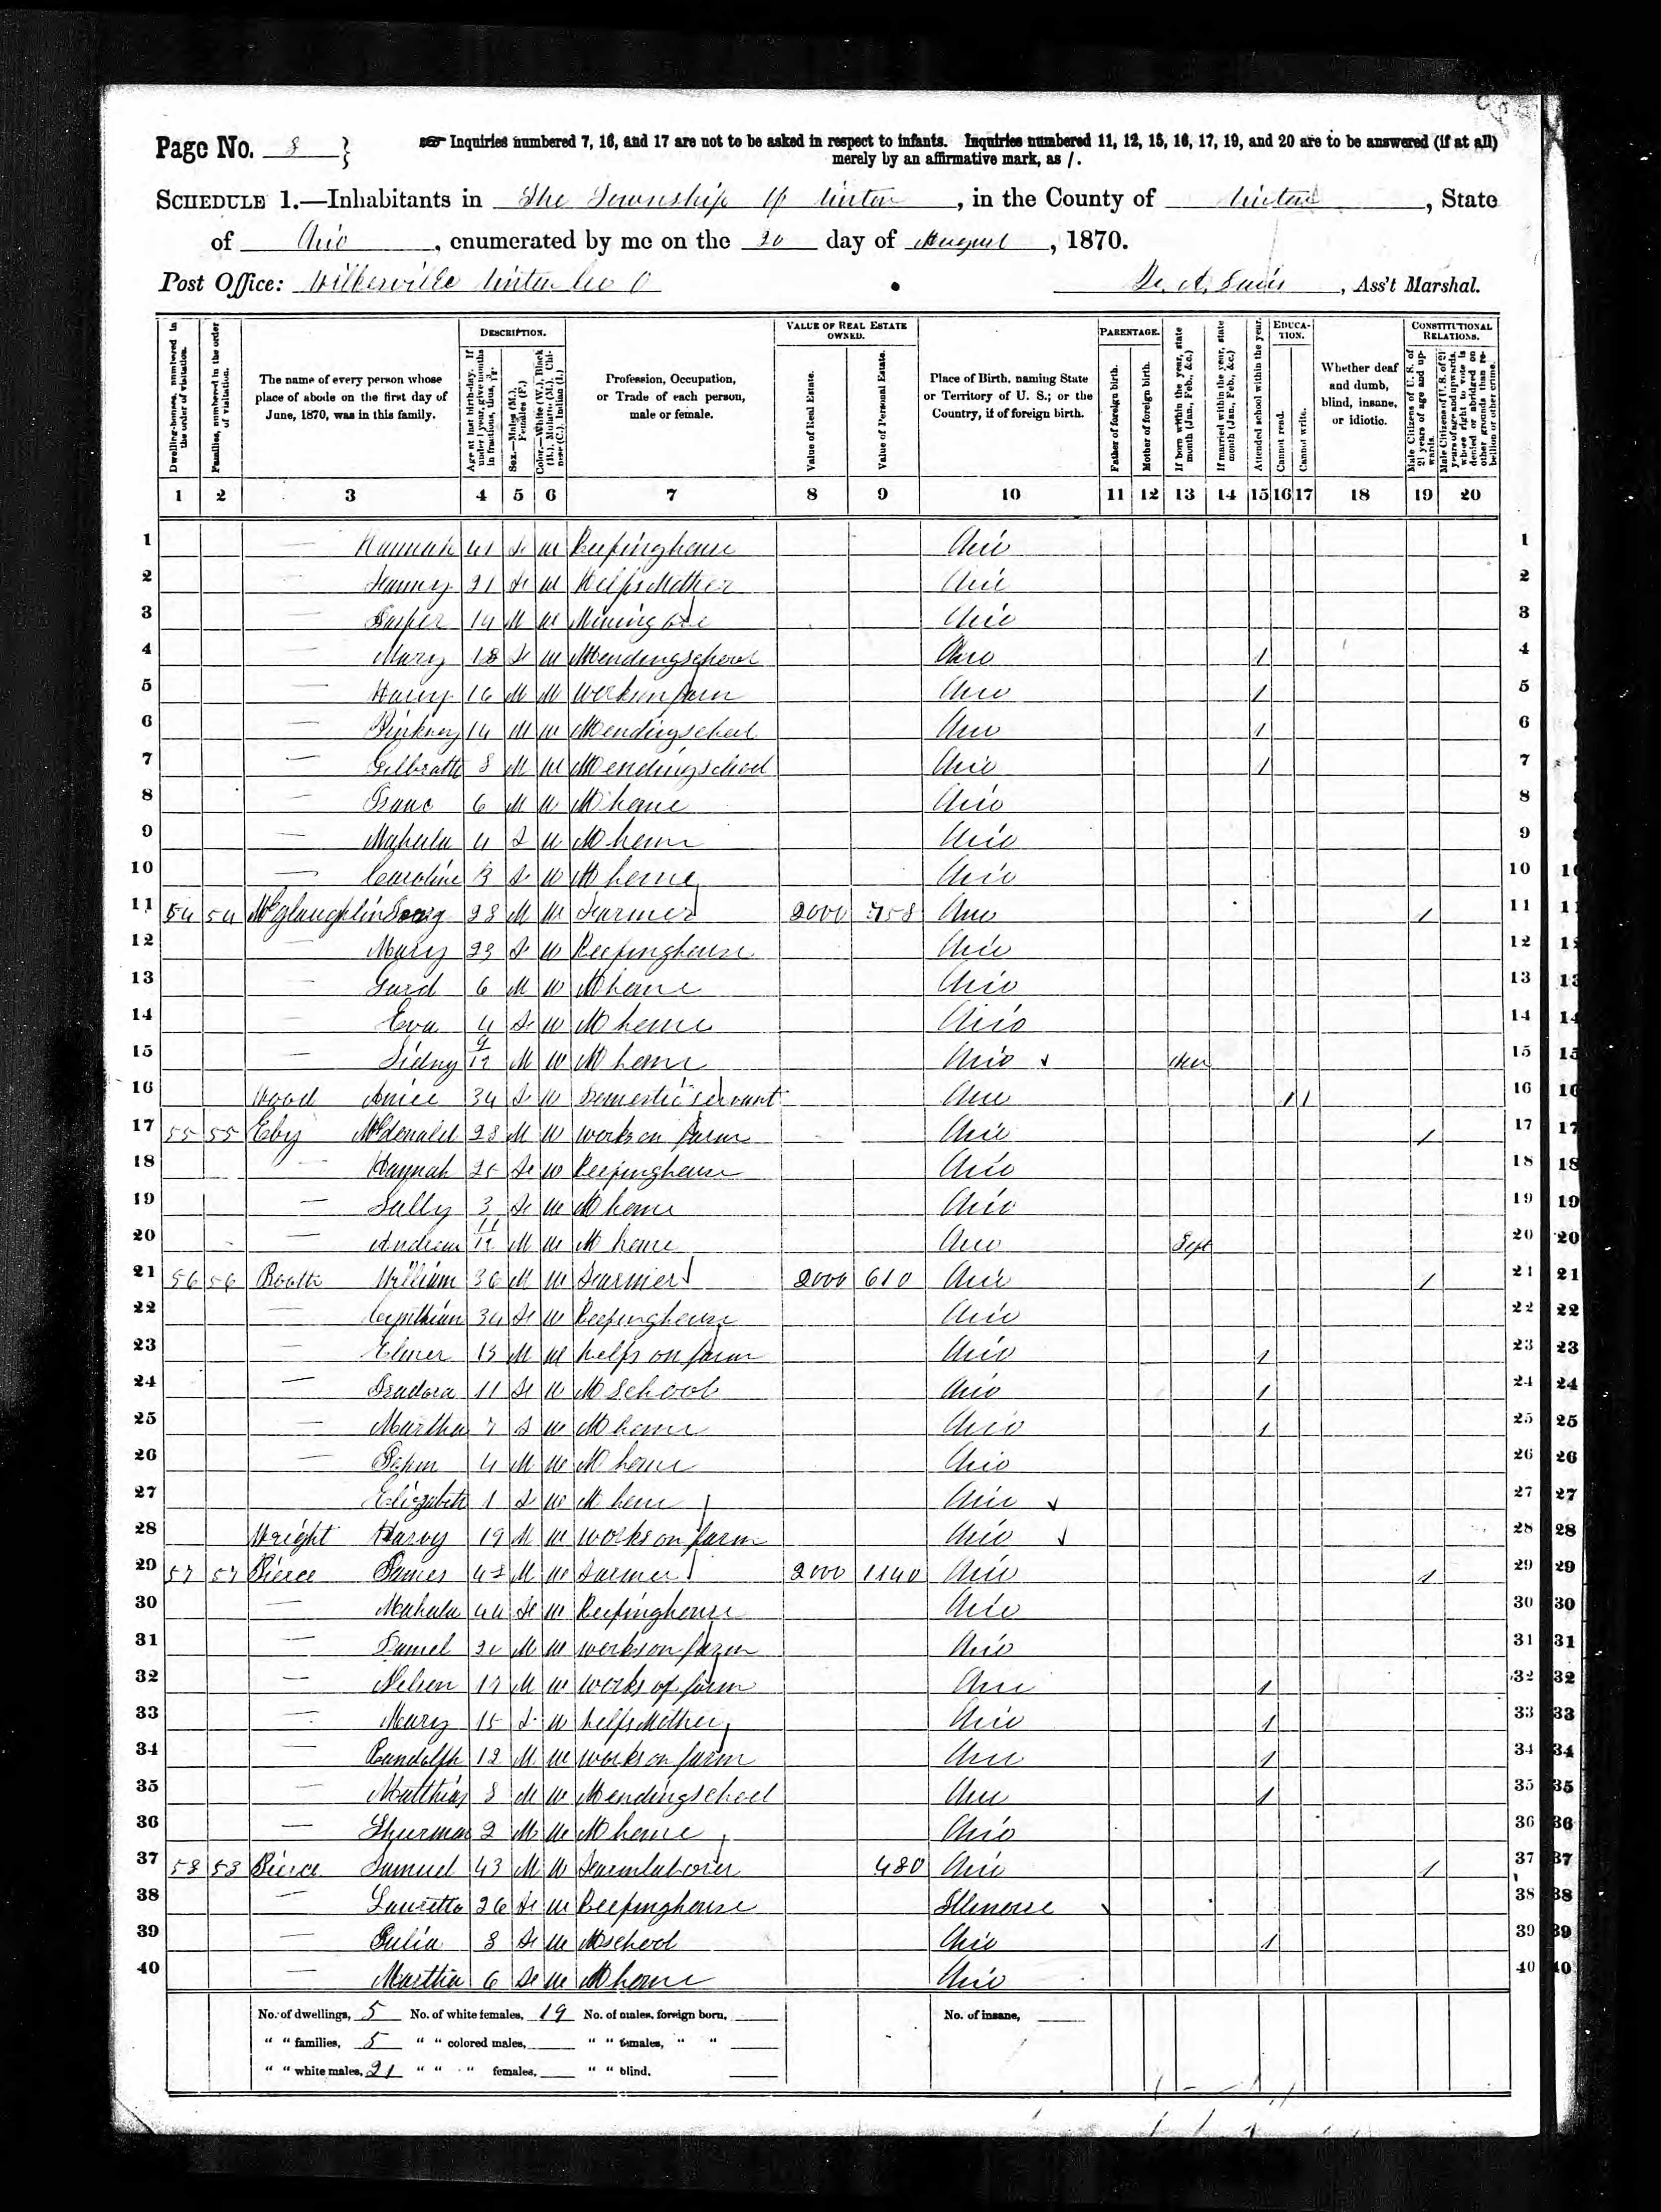 Page No. 8 }
Inquiries numbered 7, 16, and 17 are not to be asked in respect to infants. Inquiries numbered 11, 12, 15, 16, 17, 19, and 20 are to be answered (if at all)
merely by an affirmative mark, as /.
SCHEDULE 1.—Inhabitants in The Township of Vinton, in the County of Vinton, State
of Ohio, enumerated by me on the 20 day of August, 1870.
Post Office: Wilkesville Vinton Co O , Ass't Marshal.
Dwelling-houses, numbered in the order of visitation.
Families, numbered in the order of visitation.
The name of every person whose place of abode on the first day of June, 1870, was in this family.
DESCRIPTION.
Age at last birth-day. If under 1 year, give months in fractions, thus, 3/12.
Sex.—Males (M.), Females (F.)
Color.—White (W.), Black (B.), Mulatto (M.), Chinese (C.), Indian (I.)
Profession, Occupation, or Trade of each person, male or female.
VALUE OF REAL ESTATE OWNED.
Value of Real Estate.
Value of Personal Estate.
Place of Birth, naming State or Territory of U. S.; or the Country, if of foreign birth.
PARENTAGE.
Father of foreign birth.
Mother of foreign birth.
If born within the year, state month (Jan., Feb., &c.)
If married within the year, state month (Jan., Feb., &c.)
Attended school within the year.
EDUCATION.
Cannot read.
Cannot write.
Whether deaf and dumb, blind, insane, or idiotic.
CONSTITUTIONAL RELATIONS.
Male Citizens of U. S. of 21 years of age and upwards.
Male Citizens of U. S. of 21 years of age and upwards, whose right to vote is denied or abridged on other grounds than rebellion or other crime.
1 2 3 4 5 6 7 8 9 10 11 12 13 14 15 16 17 18 19 20
1 — Hannah 41 F W Keeping house Ohio 1
2 — 21 F W Helps Mother Ohio 2
3 — Jasper 19 M W Mining ore Ohio 3
4 — Mary 18 F W Attending school Ohio / 4
5 — Harvy 16 M W Works on farm Ohio / 5
6 — Pinkney 14 M W Attending school Ohio / 6
7 — Gilbrath 8 M W Attending school Ohio / 7
8 — Isaac 6 M W At home Ohio 8
9 — Mahala 4 F W At home Ohio 9
10 — Caroline 3 F W At home Ohio 10
11 54 54 McGlaughlin 28 M W Farmer 2000 758 Ohio / 11
12 — Mary 23 F W Keeping house Ohio 12
13 — Gard 6 M W At home Ohio 13
14 — Eva 4 F W At home Ohio 14
15 — Sidny 9/12 M W At home Ohio Nov 15
16 Wood 34 F W Domestic servant Ohio / / 16
17 55 55 Eby McDonald 28 M W works on farm Ohio / 17
18 — Hannah 25 F W Keeping house Ohio 18
19 — Sally 3 F W At home Ohio 19
20 — Andrew 11/12 M W At home Ohio Sept 20
21 56 56 Booth William 36 M W Farmer 2000 610 Ohio / 21
22 — Cynthian 34 F W Keeping house Ohio 22
23 — Elmer 13 M W helps on farm Ohio / 23
24 — Isadora 11 F W At School Ohio / 24
25 — Martha 7 F W At home Ohio / 25
26 — John 4 M W At home Ohio 26
27 — Elizabeth 1 F W At home Ohio 27
28 Wright Harvy 19 M W works on farm Ohio 28
29 57 57 Pierce James 48 M W Farmer 2000 1140 Ohio / 29
30 — Mahala 44 F W Keeping house Ohio 30
31 — Daniel 20 M W works on farm Ohio 31
32 — Nelson 17 M W works of farm Ohio / 32
33 — Mary 15 F W helps Mother Ohio / 33
34 — Randolph 12 M W works on farm Ohio / 34
35 — Matthias 8 M W Attending school Ohio / 35
36 — Shurman 2 M W At home Ohio 36
37 58 58 Pierce Samuel 43 M W Farm laborer 480 Ohio / 37
38 — Lauretta 26 F W Keeping house Illinois 38
39 — Julia 8 F W At school Ohio / 39
40 — Martha 6 F W At home Ohio 40
No. of dwellings, 5 No. of white females, 19 No. of males, foreign born, No. of insane,
" " families, 5 " " colored males, " " females, " "
" " white males, 21 " " " females, " " blind.